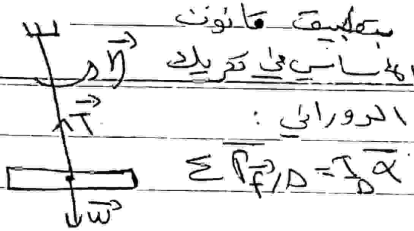 بتطبيق قانون
الأساسي في تحريك
الدوراني :
Σ Γ⃗f⃗/D = I_D α⃗
η⃗
T⃗
W⃗